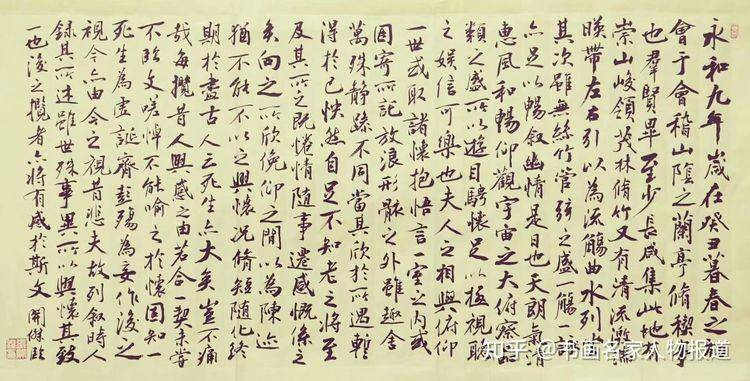 永和九年歲在癸丑暮春之初
會于會稽山陰之蘭亭脩禊事
也羣賢畢至少長咸集此地有
崇山峻領茂林脩竹又有清流激湍
暎帶左右引以為流觴曲水列坐
其次雖無絲竹管弦之盛一觴一詠
亦足以暢敘幽情是日也天朗氣清
惠風和暢仰觀宇宙之大俯察品
類之盛所以遊目騁懷足以極視聽
之娛信可樂也夫人之相與俯仰
一世或取諸懷抱悟言一室之內或
因寄所託放浪形骸之外雖趣舍
萬殊静躁不同當其欣於所遇暫
得於己怏然自足不知老之將至
及其所之既惓情隨事遷感慨係之
矣向之所欣俛仰之閒以為陳迹
猶不能不以之興懷況脩短隨化終
期於盡古人云死生亦大矣豈不痛
哉每攬昔人興感之由若合一契未嘗
不臨文嗟悼不能喻之於懷固知一
死生為虛誕齊彭殤為妄作後之
視今亦由今之視昔悲夫故列敘時人
錄其所述雖世殊事異所以興懷其致
一也後之攬者亦將有感於斯文
知乎 @书画名家人物报道